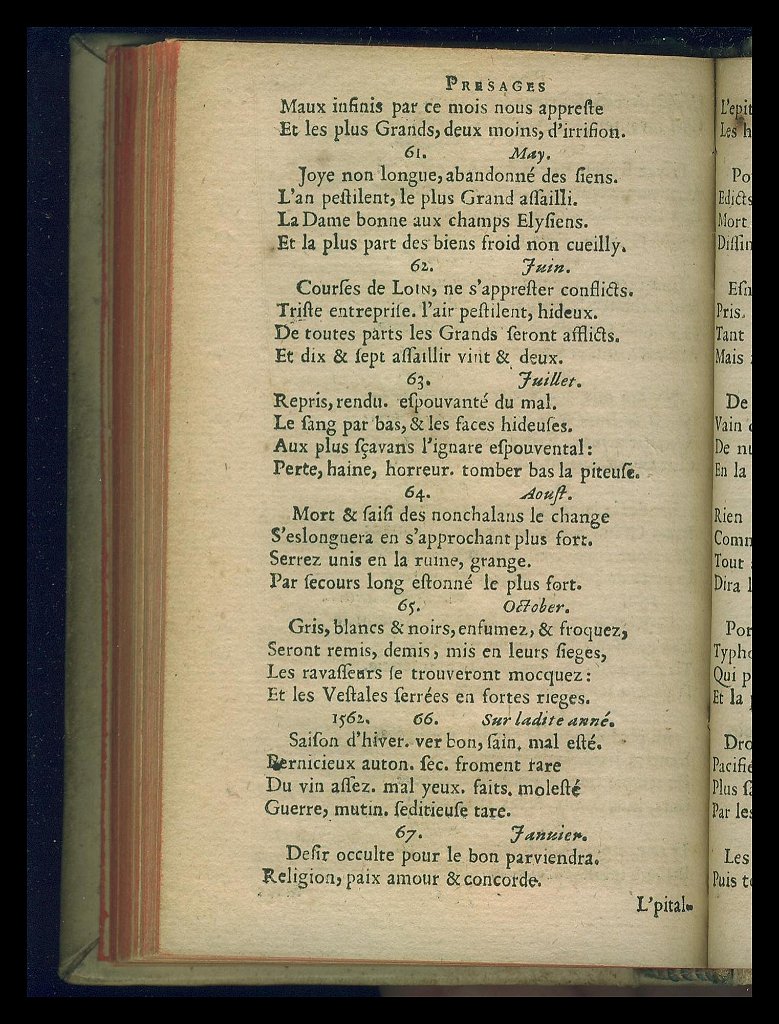 PRESAGES
Maux infinis par ce mois nous appreſte
Et les plus Grands, deux moins, d'irriſion.
61. May.
Joye non longue, abandonné des ſiens.
L'an peſtilent, le plus Grand aſſailli.
La Dame bonne aux champs Elyſiens.
Et la plus part des biens froid non cueilly.
62. Juin.
Courſes de LOIN, ne s'appreſter conflicts.
Triſte entrepriſe. l'air peſtilent, hideux.
De toutes parts les Grands ſeront afflicts.
Et dix & ſept aſſaillir vint & deux.
63. Juillet.
Repris, rendu. eſpouvanté du mal.
Le ſang par bas, & les faces hideuſes.
Aux plus ſçavans l'ignare eſpouvental:
Perte, haine, horreur. tomber bas la piteuſe.
64. Aouſt.
Mort & ſaiſi des nonchalans le change
S'eslongnera en s'approchant plus fort.
Serrez unis en la ruine, grange.
Par ſecours long eſtonné le plus fort.
65. October.
Gris, blancs & noirs, enfumez, & froquez,
Seront remis, demis, mis en leurs ſieges,
Les ravaſſeurs ſe trouveront mocquez:
Et les Veſtales ſerrées en fortes rieges.
1562. 66. Sur ladite anné.
Saiſon d'hiver. ver bon, ſain, mal eſté.
Pernicieux auton. ſec. froment rare
Du vin aſſez. mal yeux. faits. moleſté
Guerre, mutin. ſeditieuſe tare.
67. Januier.
Deſir occulte pour le bon parviendra.
Religion, paix amour & concorde.
L'pital-
L'epit
Les h
Po
Edicts
Mort
Diſſin
Eſn
Pris.
Tant
Mais
De
Vain
De nu
En la
Rien
Comm
Tout
Dira l
Por
Typho
Qui p
Et la
Dro
Pacifié
Plus ſ
Par les
Les
Puis t